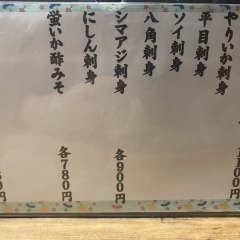 やりいか刺身
平目刺身
ソイ刺身
八角刺身
シマアジ刺身
各900円
にしん刺身
各780円
蛍いか酢みそ